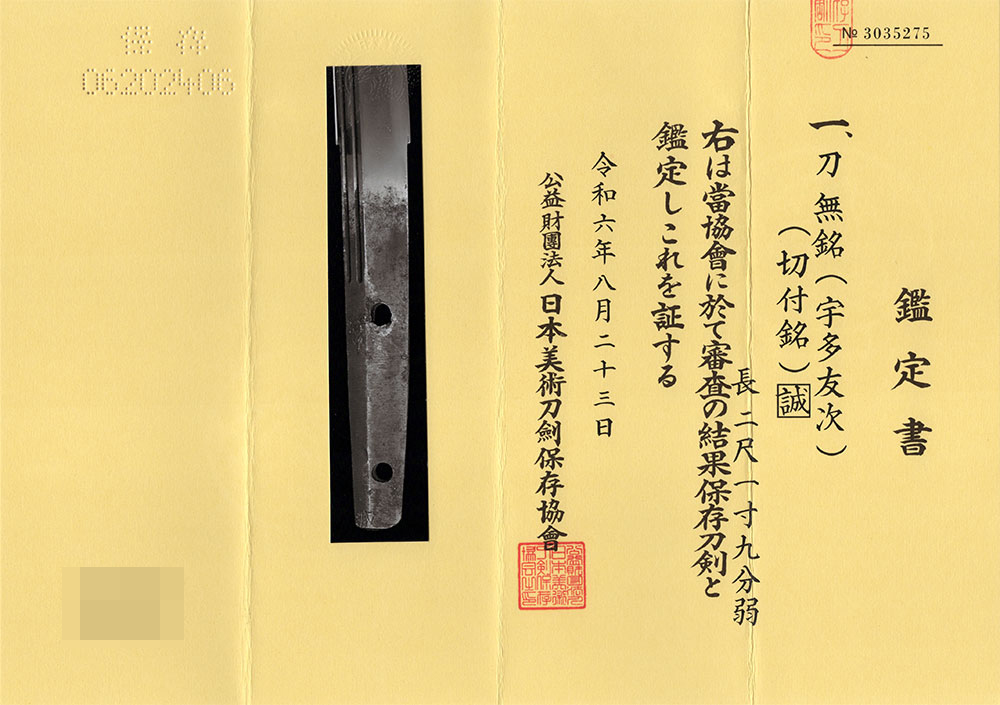 № 3035275
鑑定書
一、刀 無銘(宇多友次)
(切付銘)誠
長 二尺一寸九分弱
右は當協會に於て審査の結果保存刀剣と
鑑定しこれを証する
令和六年八月二十三日
公益財團法人 日本美術刀劍保存協會
保存
06202406